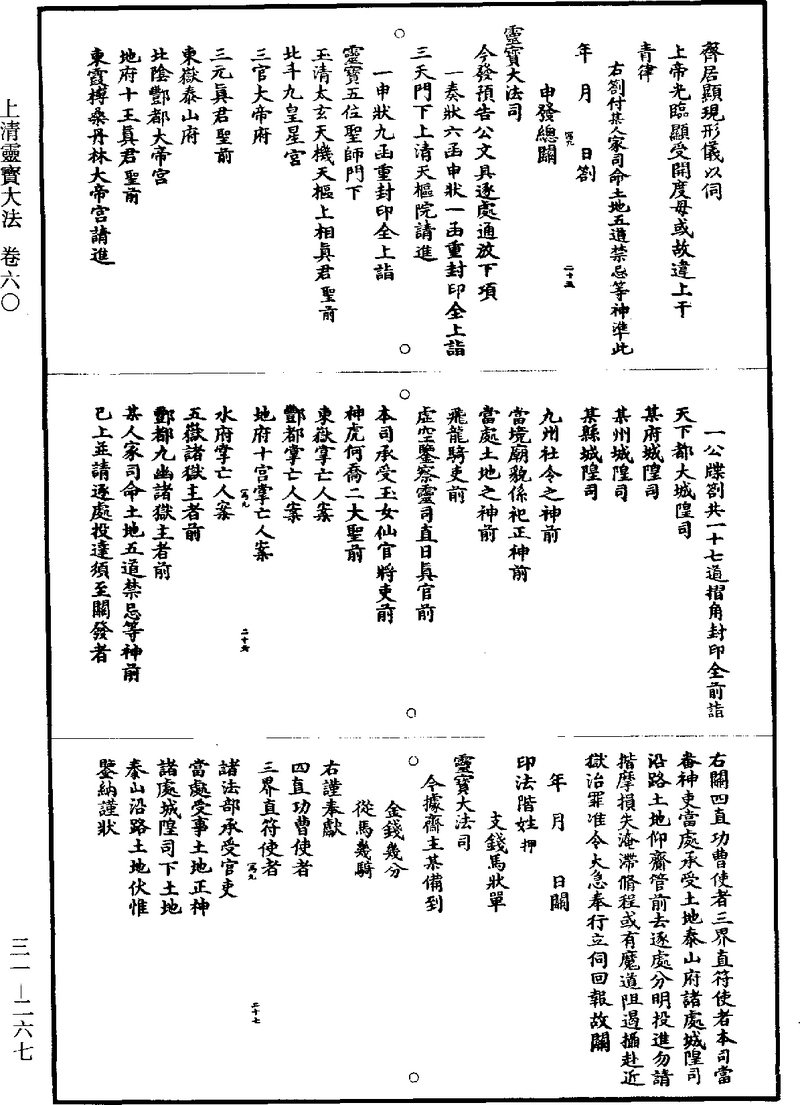 齊居顯現形儀以伺
上帝光臨顯受開度毋或故違上干
青律
右劄付某人家司命土地五道禁忌等神準此
年　月　日劄
寫九
二十五
申發總關
靈寶大法司
今發預告公文具逐處通放下項
一奏狀六函申狀一函重封印全上詣
三天門下上清天樞院請進
一申狀九函重封印全上詣
靈寶五位聖師門下
玉清太玄天機天樞上相真君聖前
北斗九皇星宮
三官大帝府
三元真君聖前
東嶽泰山府
北陰酆都大帝宮
地府十王真君聖前
東霞搏桑丹林大帝宮請進
一公牒劄共一十七道摺角封印全前詣
天下都大城隍司
某府城隍司
某州城隍司
某縣城隍司
九州社令之神前
當境廟貌係祀正神前
當處土地之神前
飛龍騎吏前
虛空鑒察靈司直日真官前
本司承受玉女仙官將吏前
神虎何喬二大聖前
東嶽掌亡人案
酆都掌亡人案
地府十宮掌亡人案
寫九
二十六
水府掌亡人案
五嶽諸獄主者前
酆都九幽諸獄主者前
某人家司命土地五道禁忌等神前
已上並請逐處投達須至關發者
右關四直功曹使者三界直符使者本司當
番神吏當處承受土地泰山府諸處城隍司
沿路土地仰齎管前去逐處分明投進勿請
揩摩損失淹滯脩程或有魔道阻遏攝赴近
獄治罪准令火急奉行立伺回報故關
年　月　日關
印法階姓　押
支錢馬狀單
靈寶大法司
今據齋主某備到
金錢幾分
從馬幾騎
右謹奉獻
四直功曹使者
三界直符使者
寫九
二十七
諸法部承受官吏
當處受事土地正神
諸處城隍司下土地
泰山沿路土地伏惟
鑒納謹狀
上清靈寶大法　卷六〇
三一—二六七